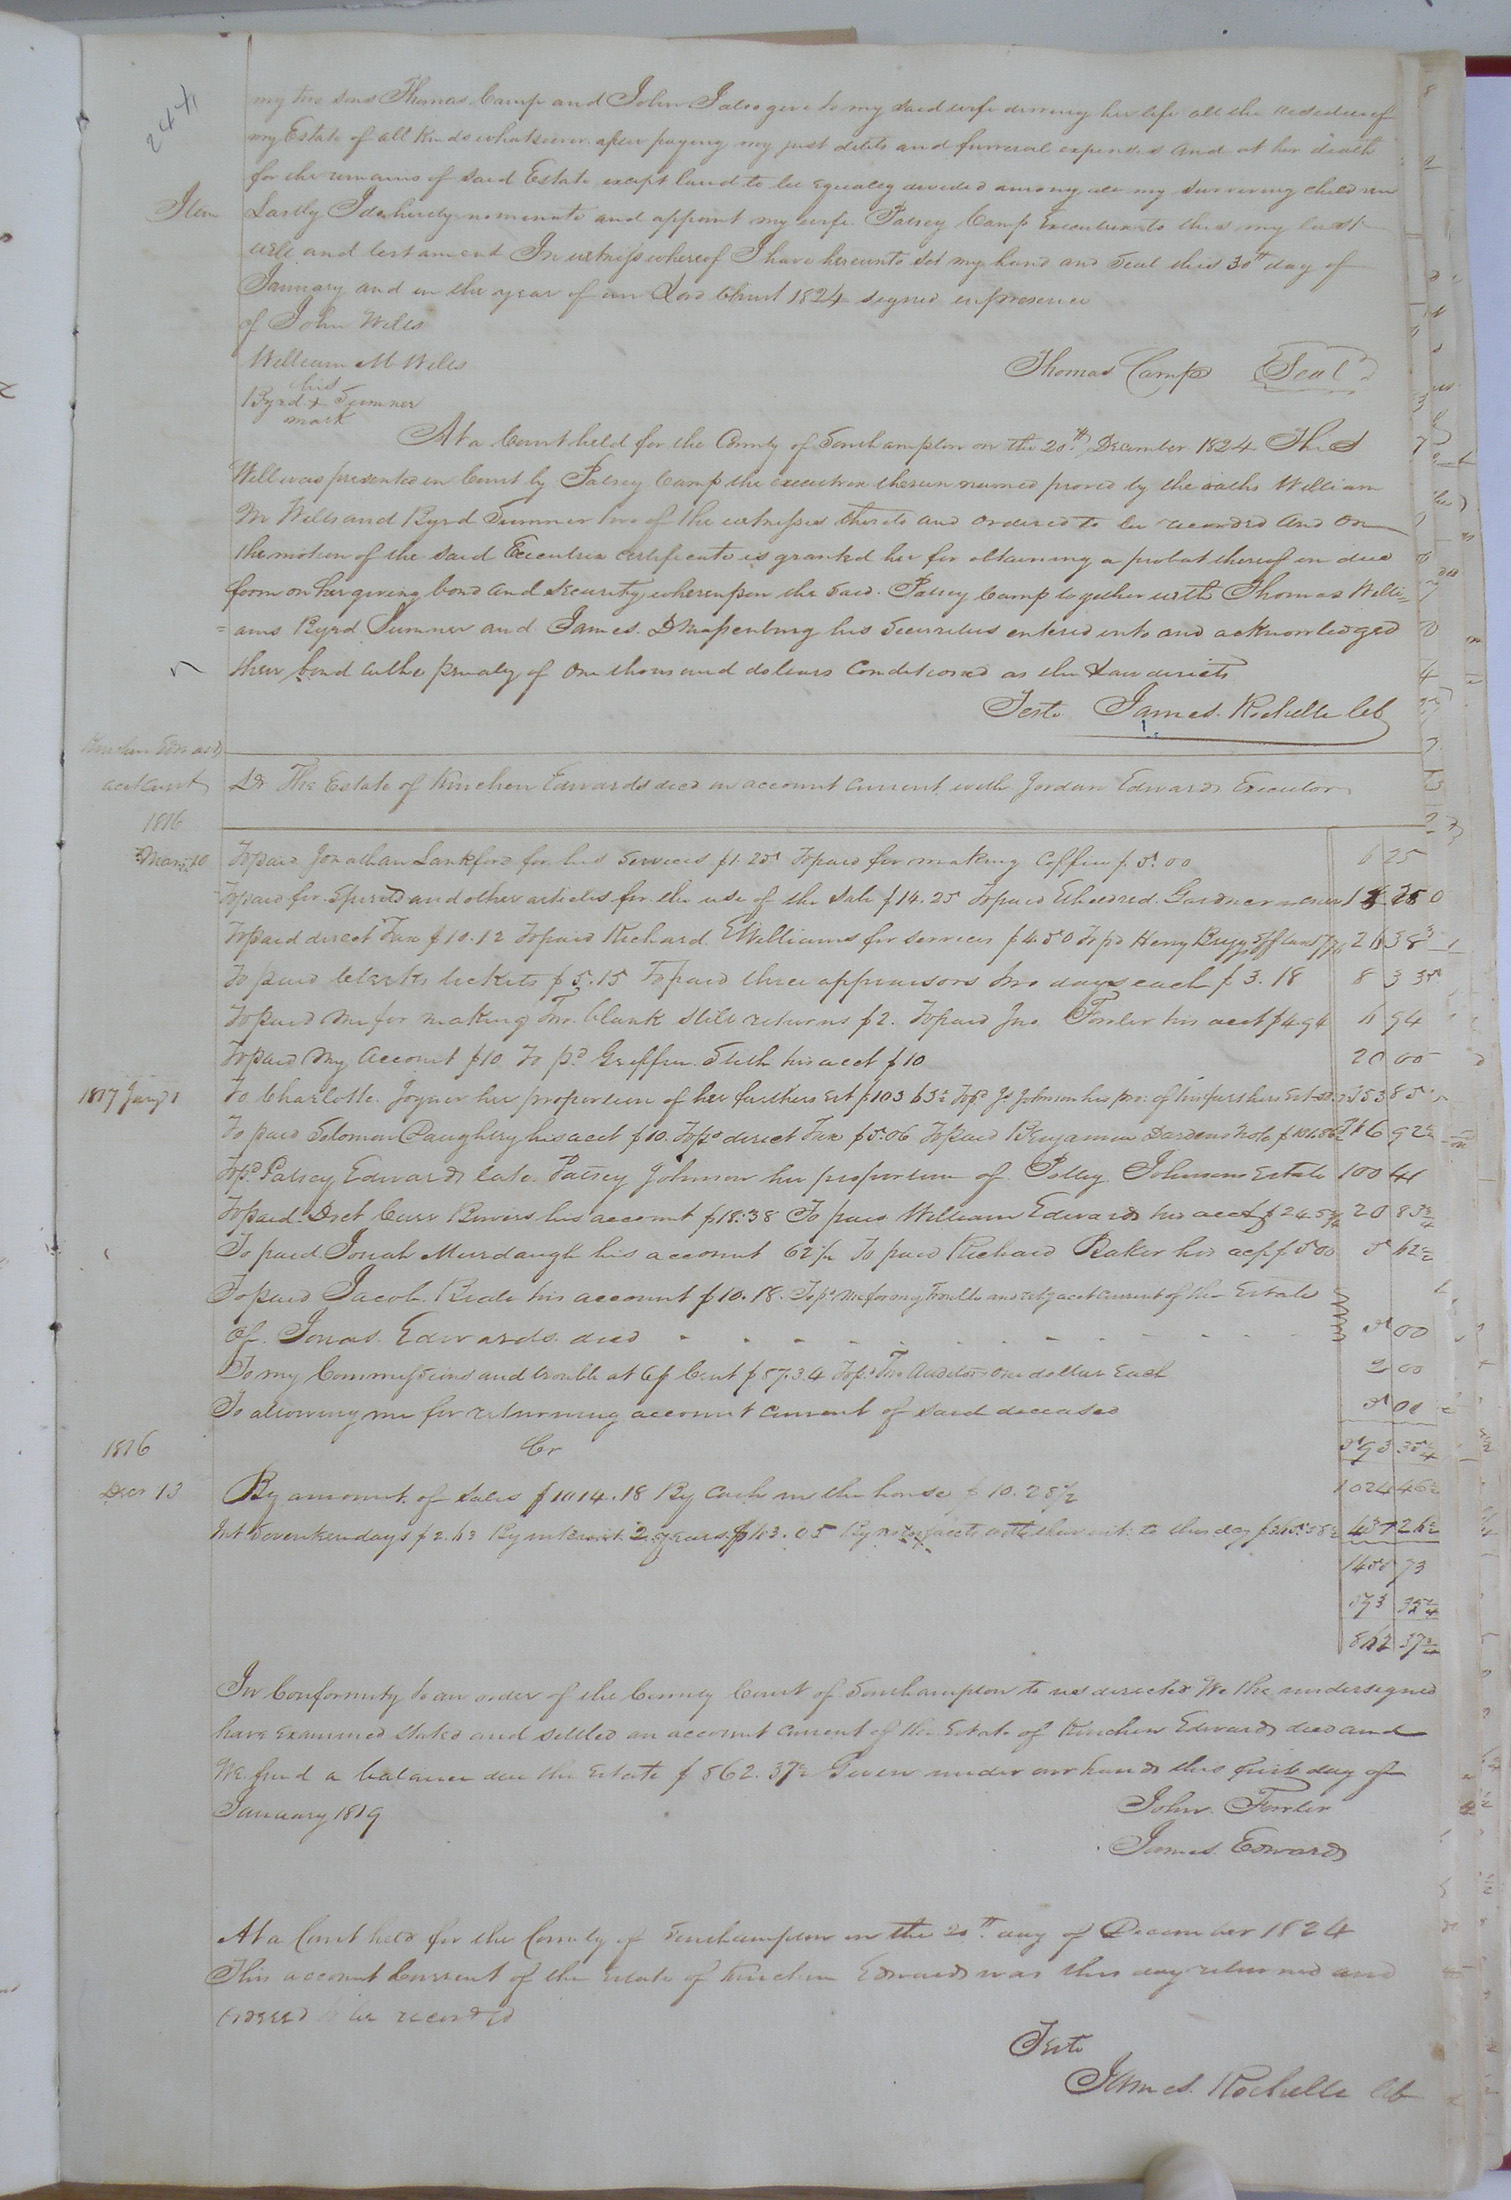 244
my two sons Thomas Camp and John I also give to my said wife during her life all the residue of
my Estate of all Kinds whatsoever after paying my just debts and funeral expenses and at her death
for the remains of said Estate except land to be Equally divided among all my surviving children
Item Lastly I do hereby nominate and appoint my wife Patsey Camp Executrix to this my last
will and testament In witness whereof I have hereunto set my hand and Seal this 30th day of
January and in the year of our Lord Christ 1824 signed in presence
of John Wills
William M Wills
Thomas Camp Seal
his
Byrd + Sumner
mark
At a Court held for the County of Southampton on the 20th December 1824 This
Will was presented in Court by Patsey Camp the executrix therein named proved by the oaths William
M Wills and Byrd Sumner two of the witnesses thereto and ordered to be recorded and on
the motion of the said Executrix certificate is granted her for obtaining a probat thereof in due
form on her giving bond and security whereupon the said Patsey Camp together with Thomas Willi=
=ams Byrd Sumner and James his Securities entered into and acknowledged
their bond in the penalty of One thousand dollars Conditioned as the Law directs
Teste James Rochelle Clk
Kinchen Edwards
acct Curt
Dr The Estate of Kinchen Edwards decd in account Current with Jordan Edwards Executor
1816
To paid Jonathan Lankford for his Services $1.25 To paid for making Coffin $5.00 6 25
To paid for Spirits and other articles for the use of the Sale $14.25 To paid Gardner
To paid direct Tax $10.12 To paid Richard Williams for services $4.50 To pd Henry
To paid Clerks tickets $5.15 To paid three appraisors two days each $3.18 8 33
To paid me for making Two blank still returns $2. To paid Jno Fowler his acct $4.94 6 94
To paid My Account $10 To pd Griffin Stith his acct $10 20 00
1817 Jany 1 To Charlotte Joyner her proportion of her fathers Est $103 63½ To pd Johnson his pro: of his fathers Est 353 85
To paid Solomon his acct $10. To pd direct Tax $5.06 To paid Benjamin Dardens Note
To pd Patsey Edwards late Patsey Johnson her proportion of Polley Johnsons Estate 100 41
To paid Doct Carr Bowers his account $18.38 To paid William Edwards his acct $2.45¾ 20 83¾
To paid Josiah Murdaugh his account 62½ To paid Richard Baker his acct $5.00 5 62½
To paid Jacob Beale his account $10.18. To pd me for my Trouble and acct current of the Estate
Of Jonas Edwards decd 5 00
To my Commissions and trouble at 6 p Cent $87.34 To pd Two Auditors One dollar Each 2 00
To allowing me for returning account current of said deceased 5 00
1816 Cr 593 35¼
Decr 13 By amount of sales $1014.18 By Cash in the house $10.28½ 1024 46½
Int Seventeen days $2.63 By interest 2 years 163.05 437 26½
1455 73
593 35¼
862 37¾
In Conformity to an order of the County Court of Southampton to us directed We the undersigned
have examined stated and settled an account current of the Estate of Kinchen Edwards decd and
We find a balance due the Estate $862.37¾ Given under our hands this first day of
January 1819
John Fowler
James Edwards
At a Court held for the County of Southampton on the 20th day of December 1824
This account Current of the Estate of Kinchen Edwards was this day returned and
Ordered to be recorded
Teste
James Rochelle Clk